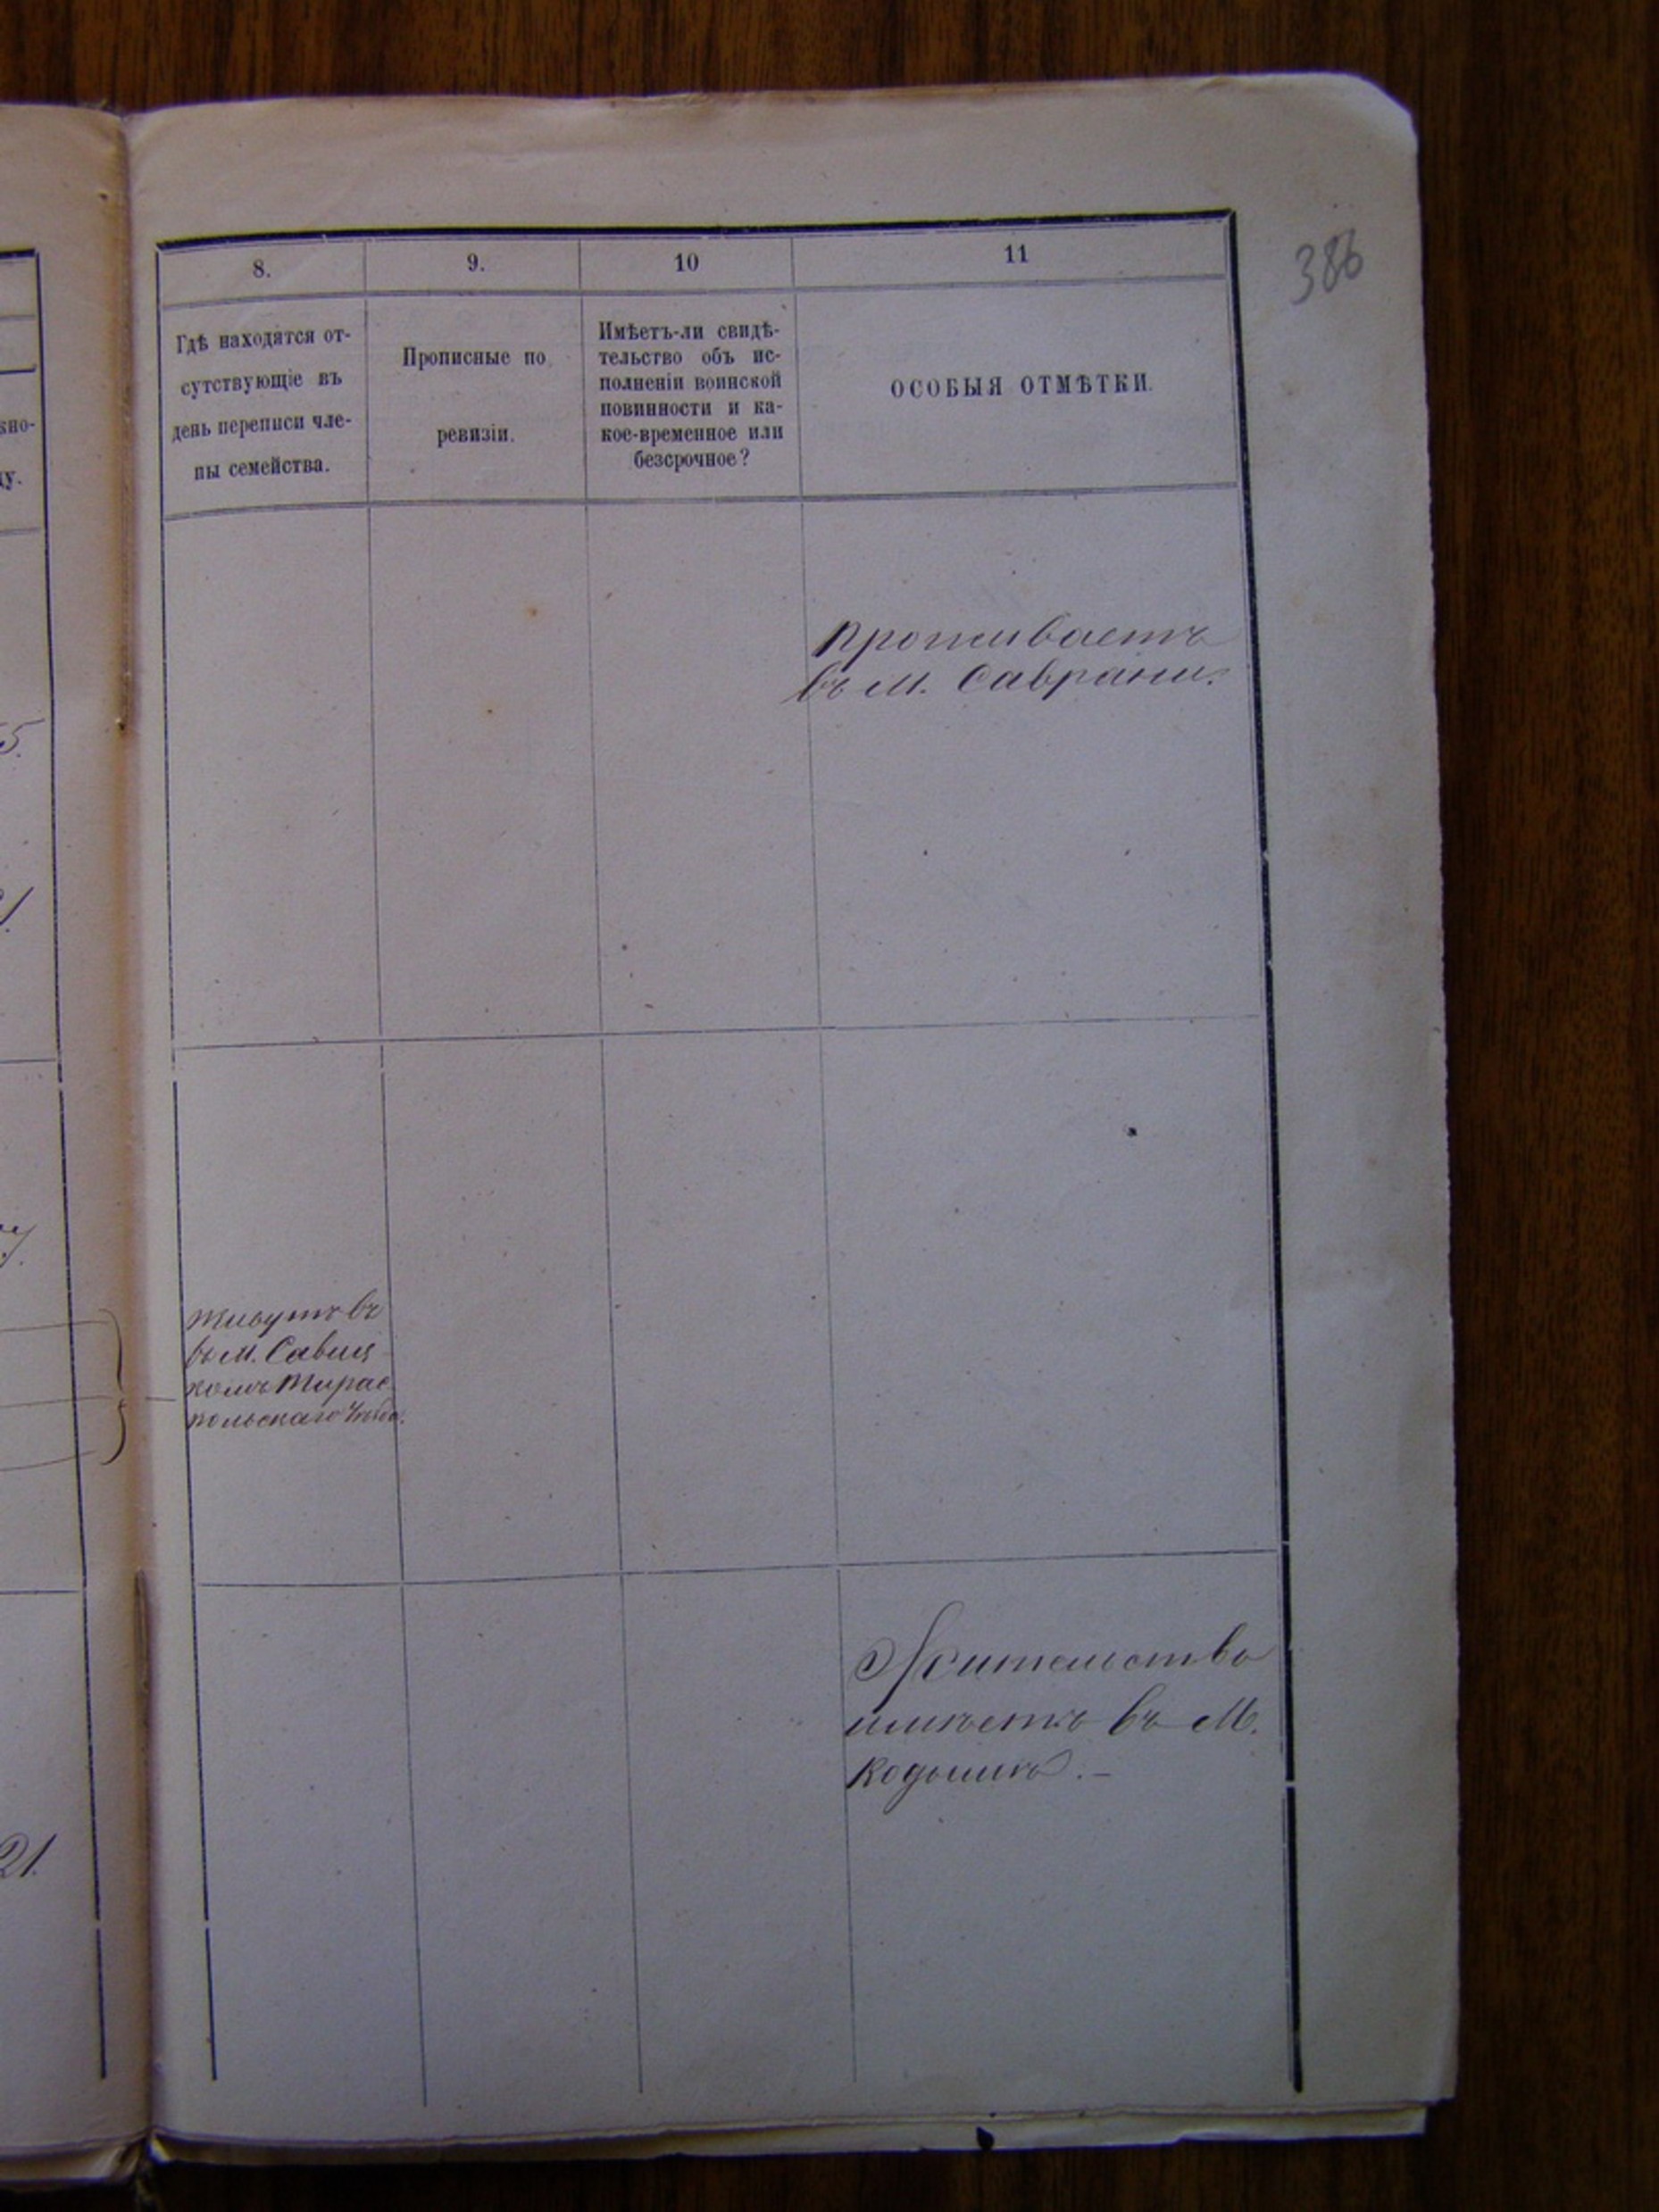 386
8.
9.
10
11
Гдѣ находятся от-
сутствующіе въ
день переписи чле-
ны семейства.
Прописные по
ревизіи.
Имѣетъ-ли свидѣ-
тельство объ ис-
полненіи воинской
повинности и ка-
кое-временное или
безсрочное?
ОСОБЫЯ ОТМѢТКИ.
проживаетъ
въ м. Саврани.
живутъ въ
въ м.
Тирас
польскаго Уѣзда.
Жительство
имѣетъ въ М.
Кодымѣ. –
5.
21.